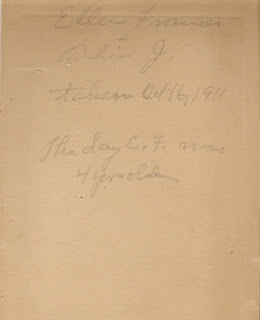 Ellen Frances
+
J.
taken Oct 16, 1911
The day E. F. was
4 yrs old